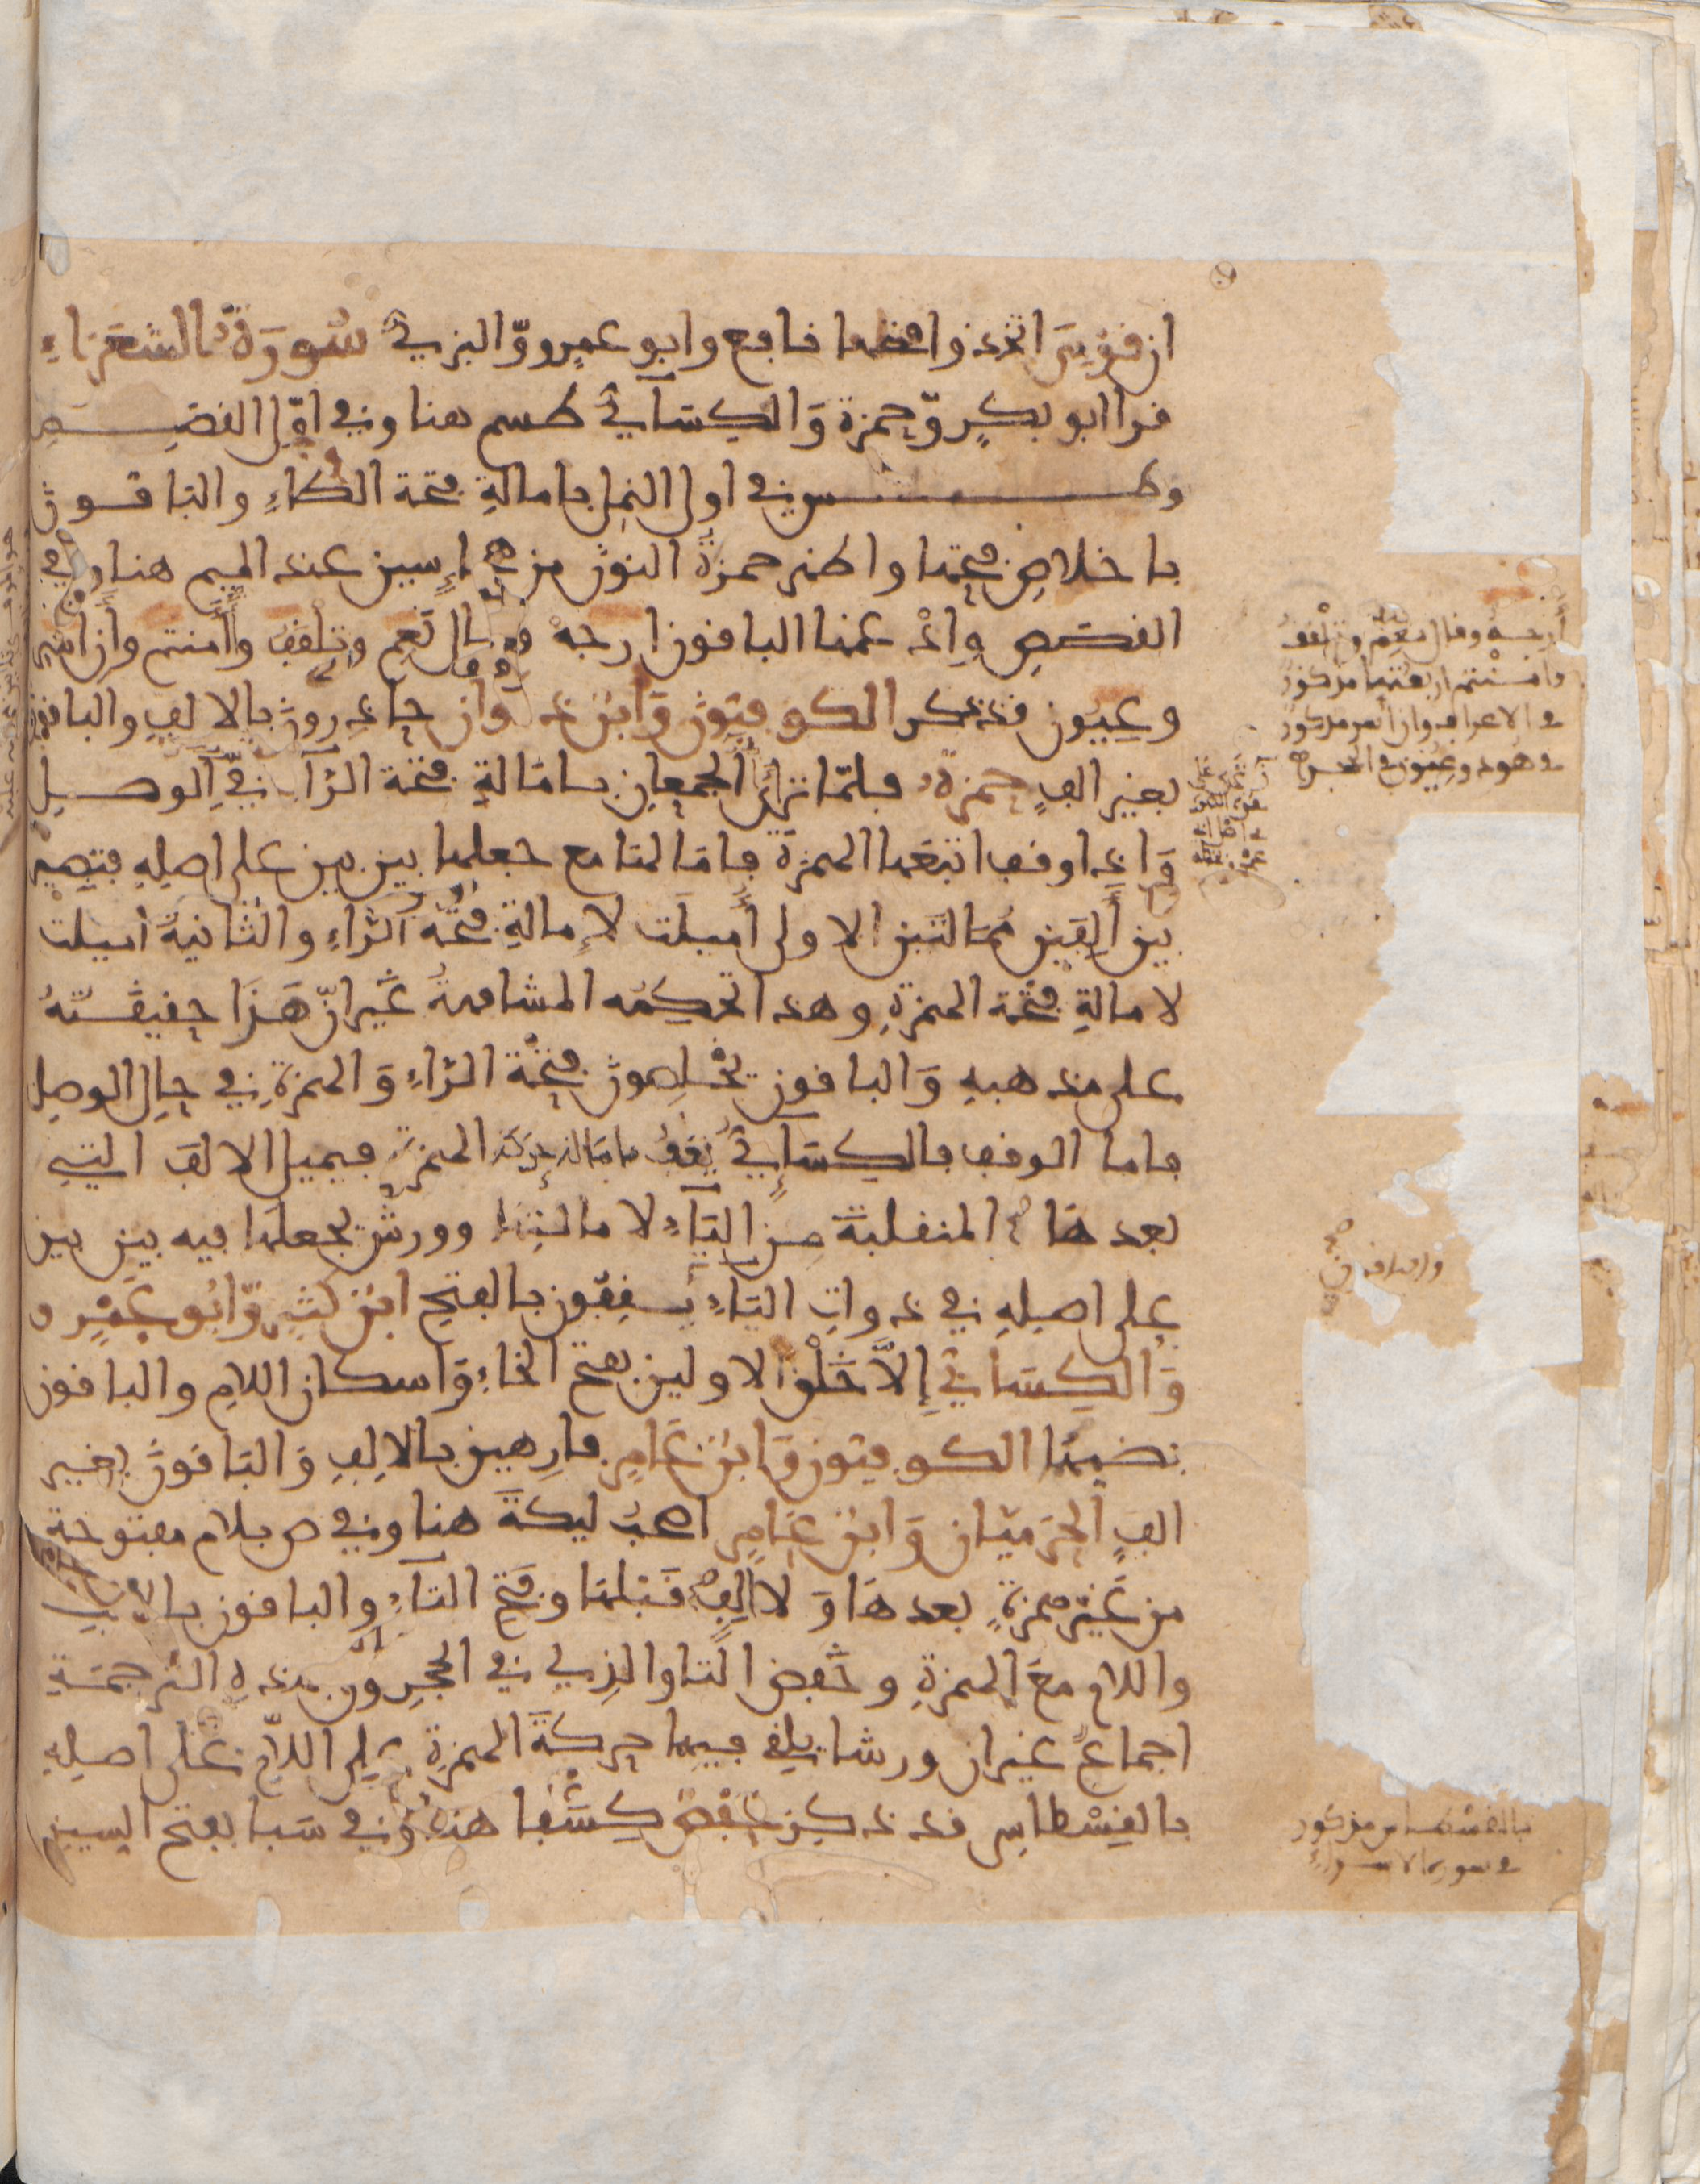 ان قومي اتخذوا فتحها نافع وابو عمرو والبزي سورة الشعراء
قرا ابو بكر وحمزة والكسائي طسم هنا وفي اول القصص
وطس في اول النمل بامالة فتحة الطاء والباقون
باخلاص فتحها واظهر حمزة النون من هجاء سين عند الميم هنا وفي
القصص وادغمها الباقون ارجه وقال نعم وتلقف وأامنتم وان اسر
وعيون قد ذكر الكوفيون وابن ذكوان حاذرون بالالف والباقون
بغير الف حمزة فلما تراى الجمعان بامالة فتحة الرآ في الوصل
واذا وقف اتبعها الهمزة فامالها مع جعلها بين بين على اصله فتصير
بين ألفين ممالتين الاولى أميلت لإمالة فتحة الراء والثانية اميلت
لامالة فتحة الهمزة وهذا تحكمه المشافهة غير ان هذا حقيقته
على مذهبه والباقون يخلصون فتحة الراء والهمزة في حال الوصل
فاما الوقف فالكسائي يقف بامالة حركة الهمزة فيميل الالف التي
بعدها المنقلبة من الياء لامالتها وورش يجعلها فيه بين بين
على اصله في ذوات الياء يقفون بالفتح ابن كثير وابو عمرو
والكسائي إلا خلق الاولين بفتح الخاء واسكان اللام والباقون
بضمها الكوفيون وابن عامر فارهين بالالف والباقون بغير
الف الحرميان وابن عامر اصحب ليكة هنا وفي ص بلام مفتوحة
من غير همزة بعدها ولا الف قبلها وفتح التاء والباقون بالالف
واللام مع الهمزة وخفض التا والذي في الحجر و ق بهذه الترجمة
اجماع غير ان ورشا يلقي فيهما حركة الهمزة على اللام على اصله
بالقسطاس قد ذكر حفص كسفا هنا وفي سبا بفتح السين
ارجه وقال نعم وتلقف
وامنتم اربعتها مذكور
في الاعراف وان اسر مذكور
في هود وعيون في الحجر
والباقون
بالقسطاس مذكور
في سورة الاسراء